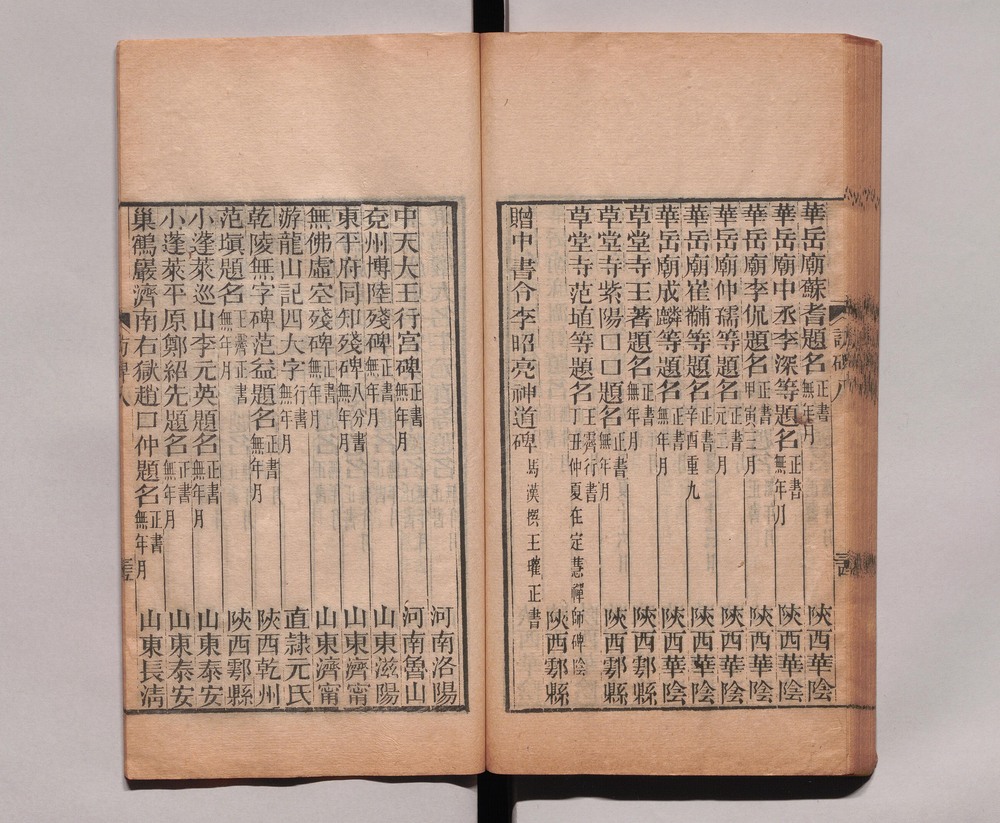 華岳廟蘇耆題名 正書無年月 陝西華陰
華岳廟中丞李深等題名 正書無年月 陝西華陰
華岳廟李侃題名 正書甲寅三月 陝西華陰
華岳廟仲孺等題名 正書元二月 陝西華陰
華岳廟崔黼等題名 正書辛酉重九 陝西華陰
華岳廟成麟等題名 正書無年月 陝西華陰
草堂寺王著題名 正書無年月 陝西鄠縣
草堂寺紫陽口口題名 正書 陝西鄠縣
草堂寺范埴等題名 王霽行書丁丑仲夏在定慧禪師碑陰
陝西鄠縣
贈中書令李昭亮神道碑 馬漢撰王瓘正書
河南洛陽
中天大王行宮碑 正書無年月 河南魯山
兗州博陸殘碑 正書無年月 山東滋陽
東平府同知殘碑 八分書 山東濟甯
無佛虛空殘碑 正書無年月 山東濟甯
游龍山記四大字 行書無年月 直隸元氏
乾陵無字碑范益題名 正書無年月 陝西乾州
范塡題名 正書無年月 陝西鄠縣
小蓬萊巡山李元英題名 正書無年月 山東泰安
小蓬萊平原鄭紹先題名 正書無年月 山東泰安
巢鶴巖濟南右獄趙口仲題名 正書無年月 山東長清